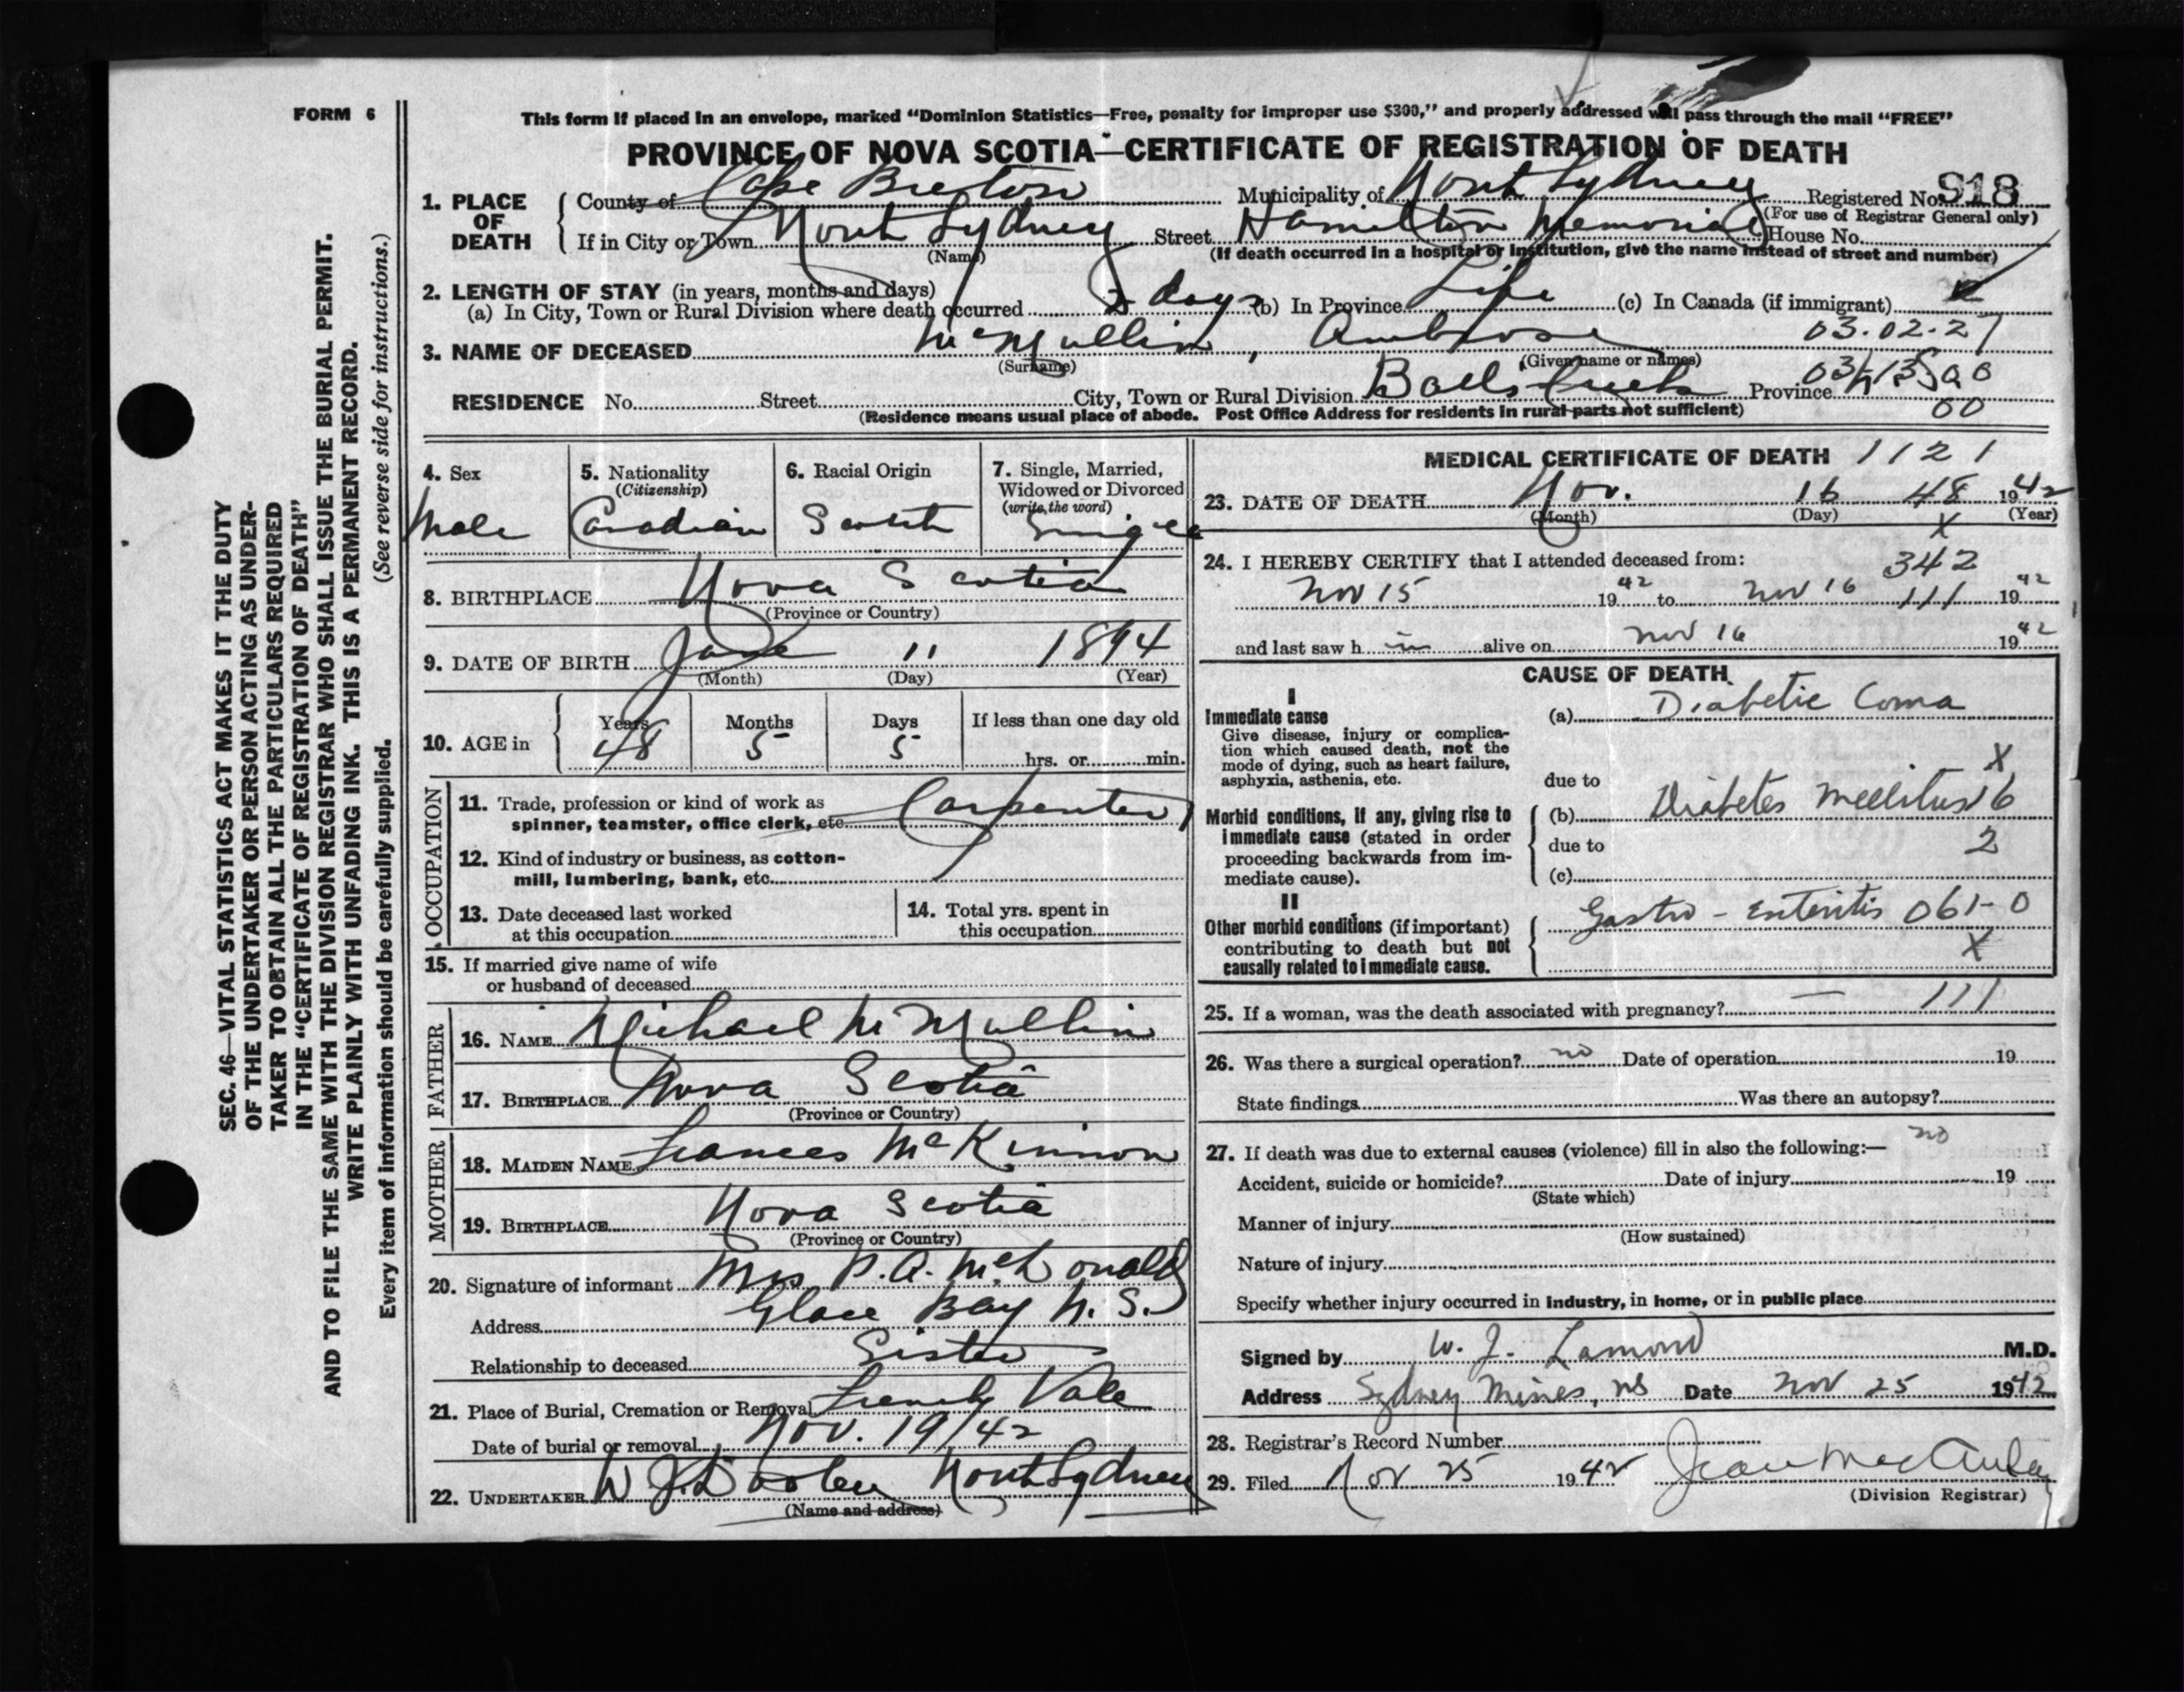 FORM 6
This form if placed in an envelope, marked "Dominion Statistics—Free, penalty for improper use $300," and properly addressed will pass through the mail "FREE"
PROVINCE OF NOVA SCOTIA—CERTIFICATE OF REGISTRATION OF DEATH
1. PLACE OF DEATH { County of Cape Breton Municipality of North Sydney Registered No. 918
(For use of Registrar General only)
If in City or Town North Sydney Street Hamilton Memorial House No.
(Name) (If death occurred in a hospital or institution, give the name instead of street and number)
2. LENGTH OF STAY (in years, months and days)
(a) In City, Town or Rural Division where death occurred 2 days (b) In Province Life (c) In Canada (if immigrant)
3. NAME OF DECEASED McMullin, Ambrose 03.02-27
(Surname) (Given name or names)
RESIDENCE No. Street City, Town or Rural Division Balls Creek Province N.S.
(Residence means usual place of abode. Post Office Address for residents in rural parts not sufficient) 00
4. Sex 5. Nationality (Citizenship) 6. Racial Origin 7. Single, Married, Widowed or Divorced (write the word)
Male Canadian Scotch Single
8. BIRTHPLACE Nova Scotia
(Province or Country)
9. DATE OF BIRTH June 11 1894
(Month) (Day) (Year)
10. AGE in { Years Months Days If less than one day old
48 5 5 hrs. or min.
OCCUPATION
11. Trade, profession or kind of work as spinner, teamster, office clerk, etc. Carpenter
12. Kind of industry or business, as cotton-mill, lumbering, bank, etc.
13. Date deceased last worked at this occupation
14. Total yrs. spent in this occupation
15. If married give name of wife or husband of deceased
FATHER
16. NAME Michael McMullin
17. BIRTHPLACE Nova Scotia
(Province or Country)
MOTHER
18. MAIDEN NAME Frances McKinnon
19. BIRTHPLACE Nova Scotia
(Province or Country)
20. Signature of informant Mrs P.A. McDonald
Address Glace Bay N.S.
Relationship to deceased Sister
21. Place of Burial, Cremation or Removal French Vale
Date of burial or removal Nov. 19/42
22. UNDERTAKER W J Dooley North Sydney
(Name and address)
MEDICAL CERTIFICATE OF DEATH 1121
23. DATE OF DEATH Nov. 16 48 1942
(Month) (Day) (Year)
X
24. I HEREBY CERTIFY that I attended deceased from: 342
Nov 15 1942 to Nov 16 111 1942
and last saw h im alive on Nov 16 1942
CAUSE OF DEATH
I
Immediate cause
Give disease, injury or complication which caused death, not the mode of dying, such as heart failure, asphyxia, asthenia, etc.
(a) Diabetic Coma
X
due to
Morbid conditions, if any, giving rise to immediate cause (stated in order proceeding backwards from immediate cause).
(b) Diabetes Mellitus 16
due to 2
(c)
II
Other morbid conditions (if important) contributing to death but not causally related to immediate cause.
Gastro-Enteritis 061-0
X
25. If a woman, was the death associated with pregnancy? — 111
26. Was there a surgical operation? no Date of operation 19
State findings Was there an autopsy?
27. If death was due to external causes (violence) fill in also the following:— no
Accident, suicide or homicide? Date of injury 19
(State which)
Manner of injury
(How sustained)
Nature of injury
Specify whether injury occurred in industry, in home, or in public place
Signed by W. J. Lamond M.D.
Address Sydney Mines, NS Date Nov 25 1942
28. Registrar's Record Number
29. Filed Nov 25 1942 Jean MacAulay
(Division Registrar)
SEC. 46—VITAL STATISTICS ACT MAKES IT THE DUTY
OF THE UNDERTAKER OR PERSON ACTING AS UNDER-
TAKER TO OBTAIN ALL THE PARTICULARS REQUIRED
IN THE "CERTIFICATE OF REGISTRATION OF DEATH"
AND TO FILE THE SAME WITH THE DIVISION REGISTRAR WHO SHALL ISSUE THE BURIAL PERMIT.
WRITE PLAINLY WITH UNFADING INK. THIS IS A PERMANENT RECORD.
Every item of information should be carefully supplied. (See reverse side for instructions.)